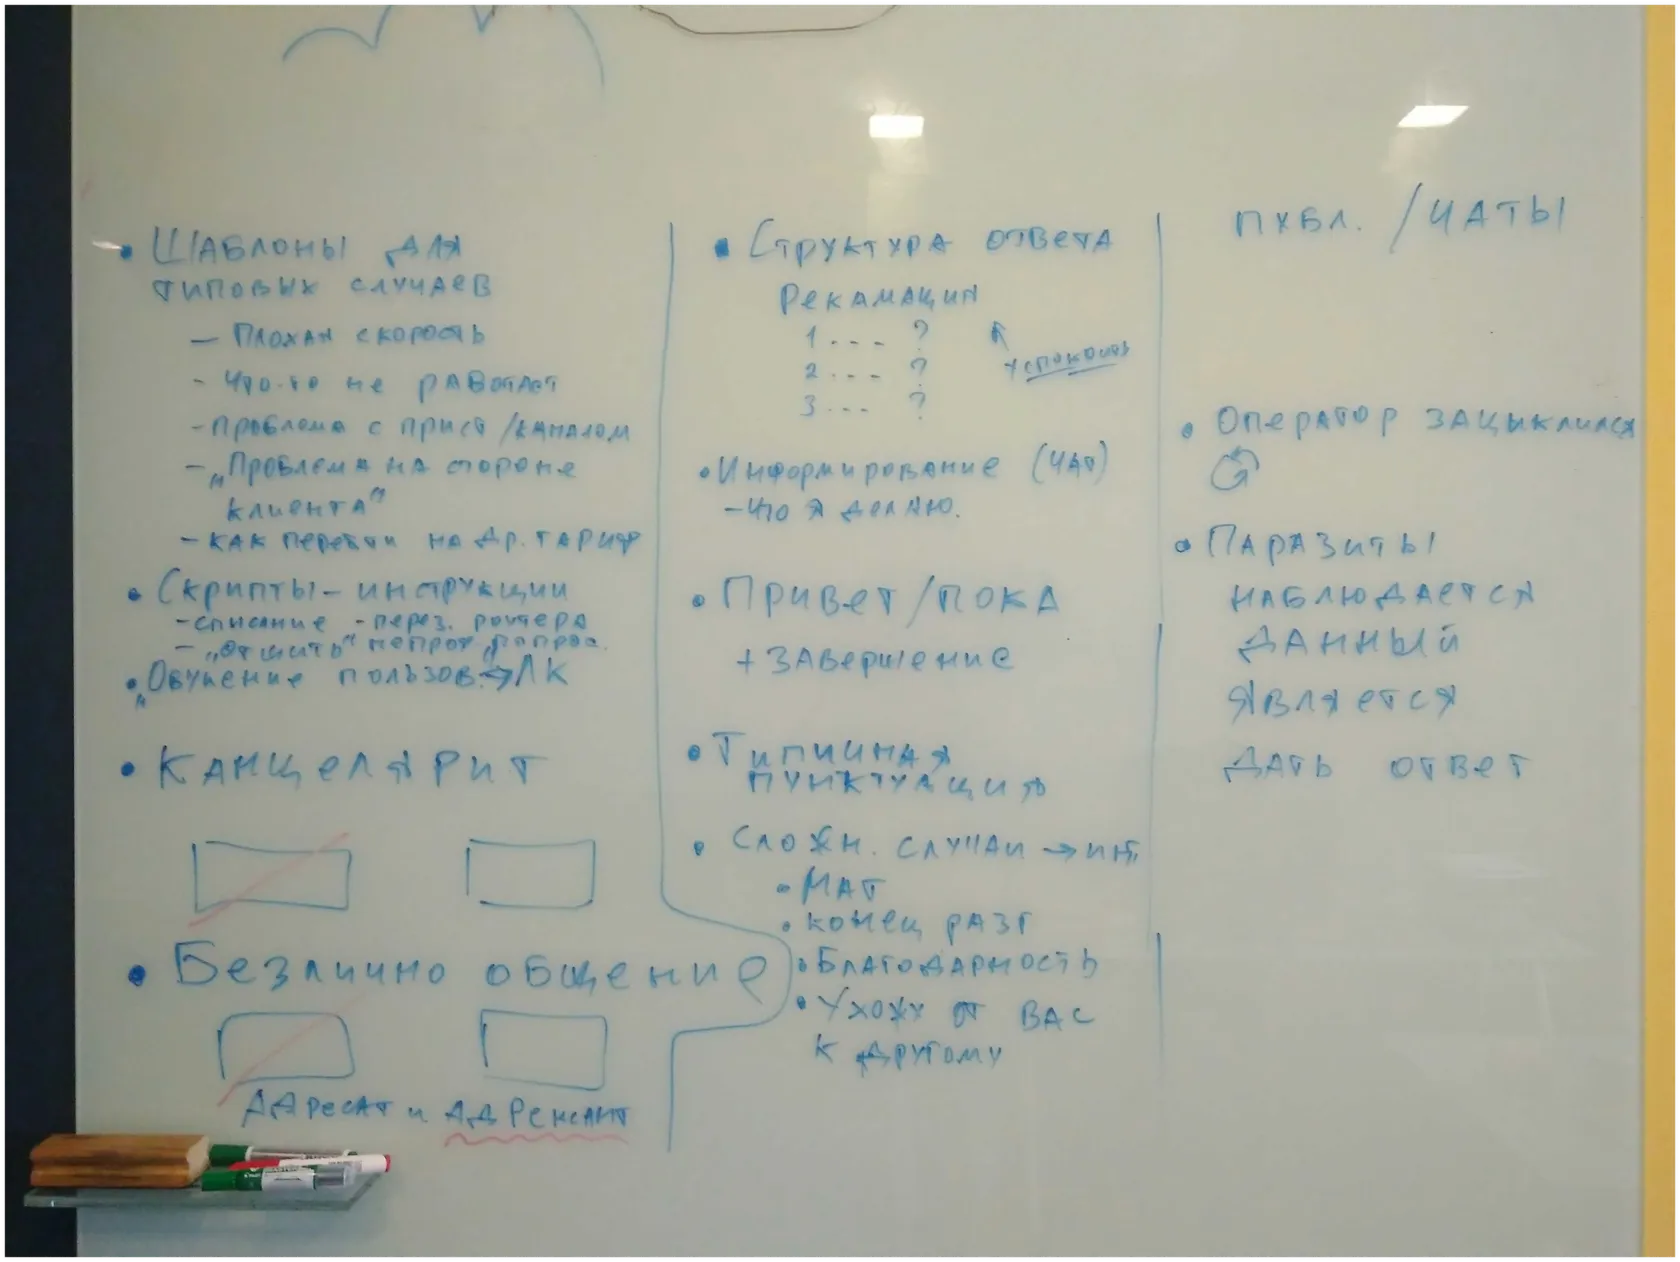 • Шаблоны для
типовых случаев
— Плохая скорость
- Что-то не работает
- Проблема с прист/каналом
- „Проблема на стороне
клиента"
- Как перейти на др. тариф
• Скрипты - инструкции
- списание - перез. роутера
- „Отшить"
• „Обучение пользов. → ЛК
• Канцелярит
• Безлично общение
Адресат и Адренсант
• Структура ответа
Рекамации
1 .... ?
2 .... ?
3 ... ?
успокоить
• Информирование (чат)
- Что я делаю.
• Привет/пока
+ завершение
• Типичная
пунктуация
• Сложн. случаи → инт.
• Мат
• конец разг
• Благодарность
• Ухожу от вас
к другому
публ. / чаты
• Оператор зацыклился
• Паразиты
наблюдается
данный
является
дать ответ